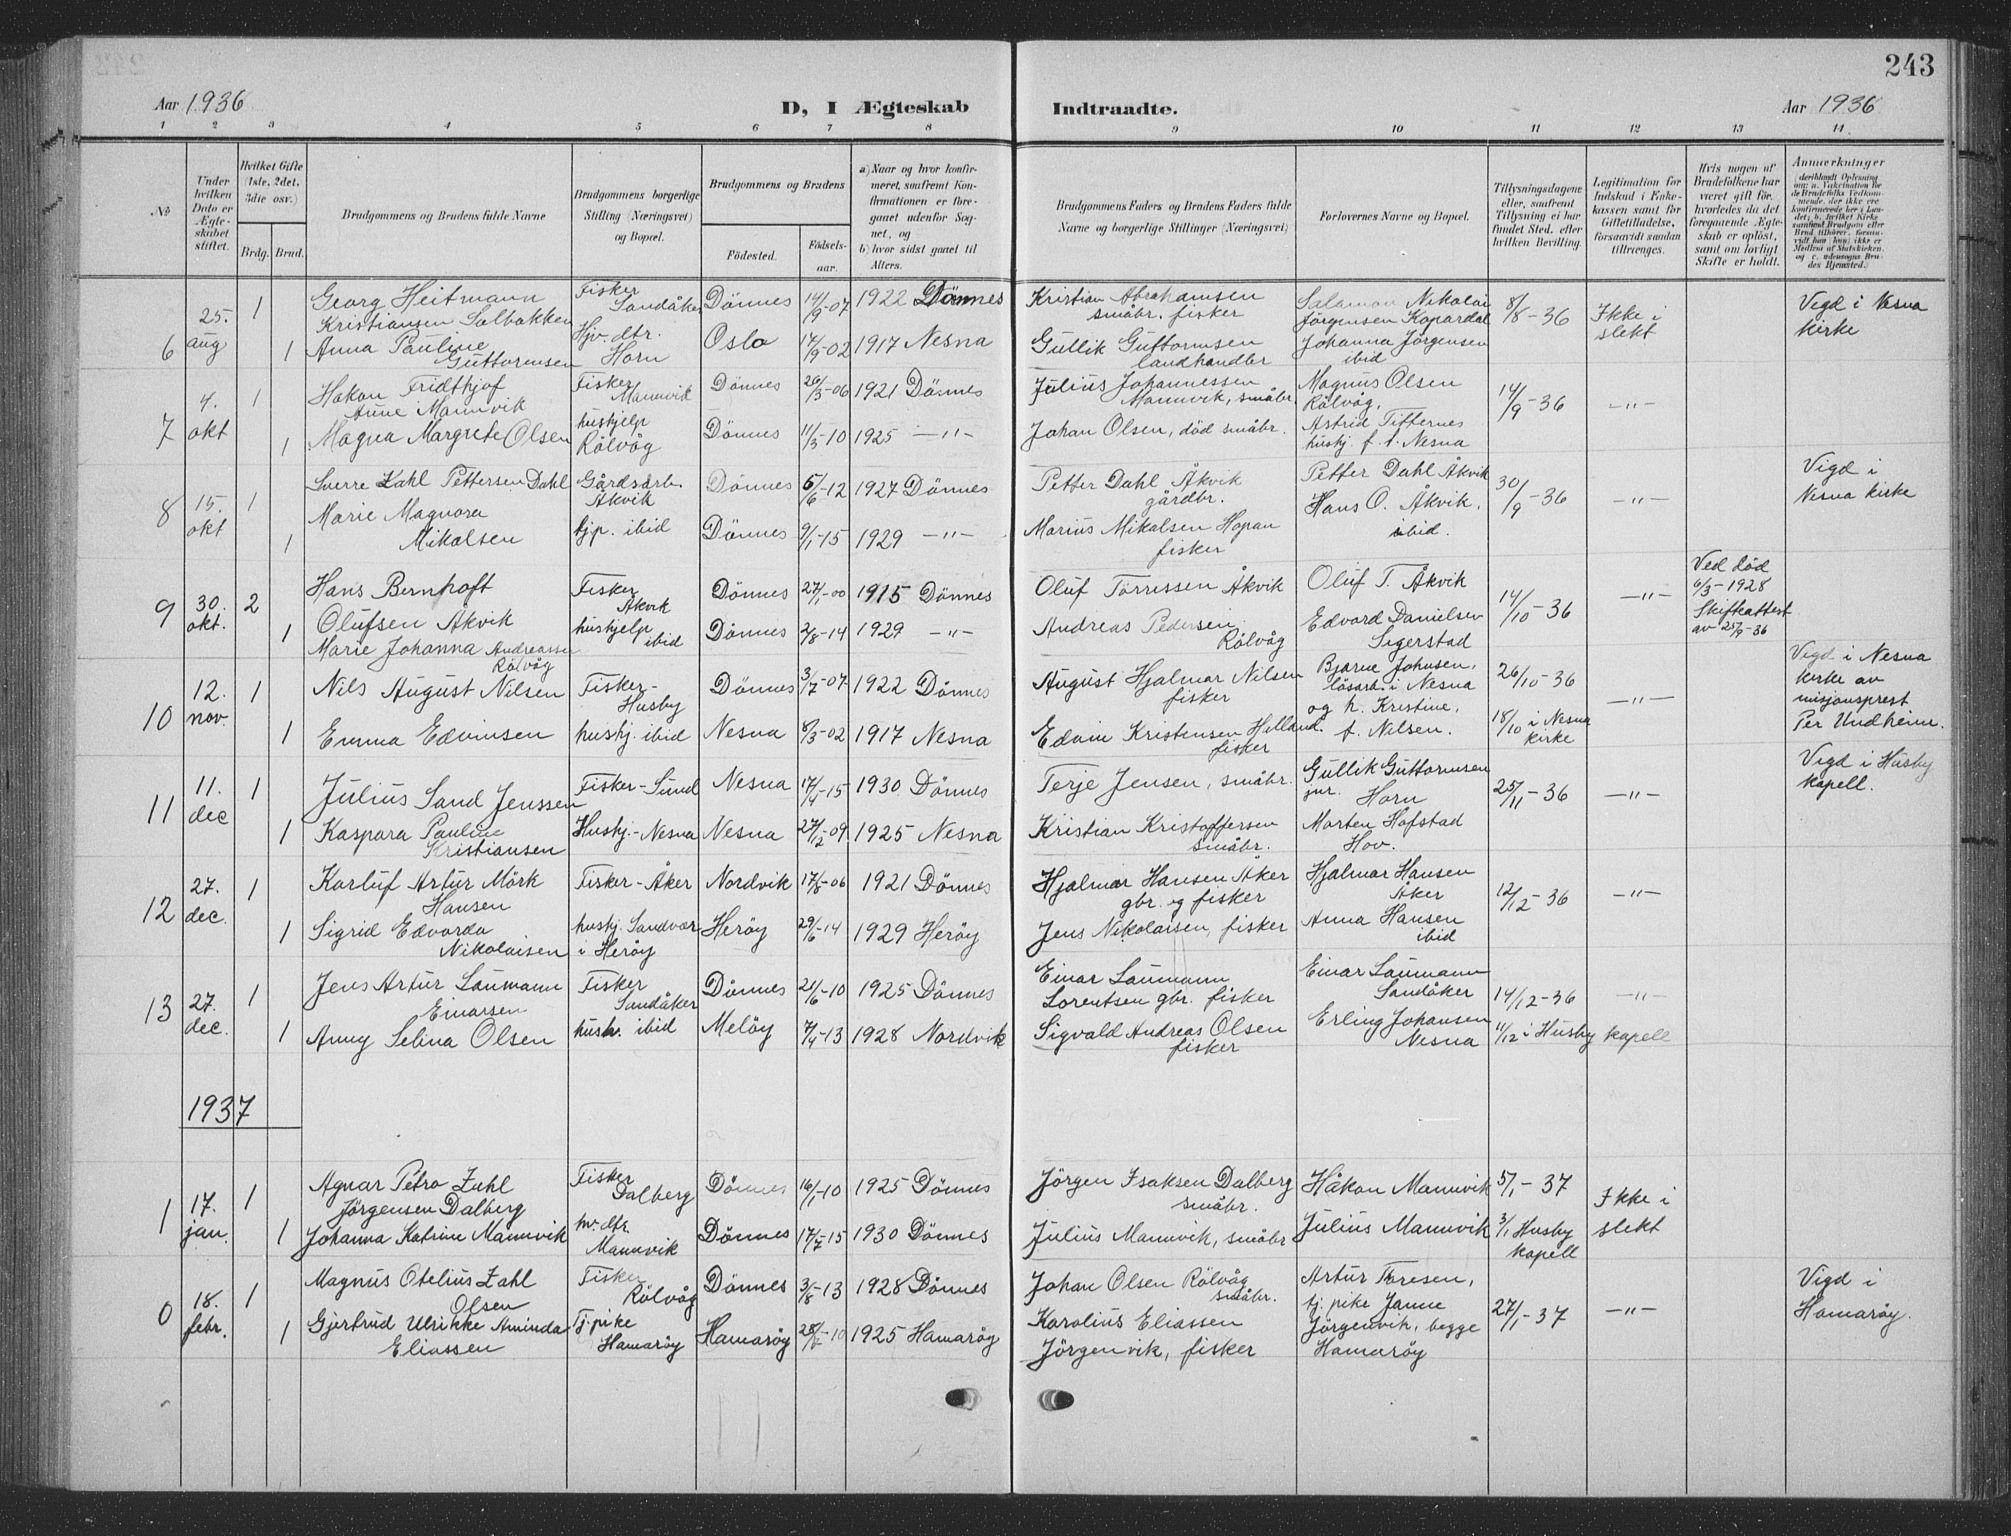 243
Aar 1936
D, I Ægteskab Indtraadte.
Aar 1936
1 2 3 4 5 6 7 8 9 10 11 12 13 14
No
Under hvilken Dato er Ægteskabet stiftet.
Hvilket Gifte (1ste, 2det, 3die osv.)
Brdg. Brud.
Brudgommens og Brudens fulde Navne
Brudgommens borgerlige Stilling (Næringsvei) og Bopæl.
Brudgommens og Brudens
Fødested.
Fødselsaar.
a) Naar og hvor konfirmeret, saafremt Konfirmationen er foregaaet udenfor Sognet, og
b) hvor sidst gaaet til Alters.
Brudgommens Faders og Brudens Faders fulde Navne og borgerlige Stillinger (Næringsvei)
Forlovernes Navne og Bopæl.
Tillysningsdagene eller, saafremt Tillysning ei har fundet Sted, efter hvilken Bevilling.
Legitimation for Indskud i Enkekassen samt for Giftetilladelse, forsaavidt saadan tiltrænges.
Hvis nogen af Brudefolkene har været gift før, hvorledes da det foregaaende Ægteskab er opløst, samt om lovligt Skifte er holdt.
Anmærkninger
6 25. aug 1 Georg Heitmann Kristiansen Solbakken Fisker Sandåker Dönnes 14/9-07 1922 Dönnes Kristian Abrahamsen småbr. fisker Salamon Nikolai Jörgensen Kopardal 8/8-36 Ikke i slekt Vigd i Nesna kirke
1 Anna Pauline Guttormsen Hjv. dtr. Horn Oslo 17/9-02 1917 Nesna Gullik Guttormsen landhandler Johanna Jörgensen ibid
7 4. okt 1 Håkon Fridthjof Aune Mannvik Fisker Mannvik Dönnes 26/3-06 1921 Dönnes Julius Johannessen Mannvik, småbr. Magnus Olsen Rölvåg, 14/9-36 -"-
1 Magna Margrete Olsen hushjelp Rölvåg Dönnes 11/3-10 1925 -"- Johan Olsen, död småbr. Astrid Tifternes hushj. f. t. Nesna
8 15. okt 1 Sverre Zahl Pettersen Dahl Gårdsarb. Åkvik Dönnes 5/6-12 1927 Dönnes Petter Dahl Åkvik gårdbr. Petter Dahl Åkvik 30/9-36 -"- Vigd i Nesna kirke
1 Marie Magnora Mikalsen tjp. ibid Dönnes 9/1-15 1929 -"- Marius Mikalsen Hopan fisker Hans O. Åkvik. ibid.
9 30. okt. 2 Hans Bernhoft Olufsen Åkvik Fisker Åkvik Dönnes 27/1-00 1915 Dönnes Oluf Tørressen Åkvik Oluf T. Åkvik 14/10-36 -"- Ved död 6/3-1928 Skifteattest av 25/9-36
1 Marie Johanna Andreassen Rölvåg hushjelp ibid Dönnes 2/8-14 1929 -"- Andreas Pedersen Rölvåg Edvard Danielsen Sigerstad
10 12. nov. 1 Nils August Nilsen Fisker-Husby Dönnes 3/7-07 1922 Dönnes August Hjalmar Nilsen fisker Bjarne Johnsen, lösarb. i Nesna 26/10-36 -"- Vigd i Nesna kirke av misjonsprest Per Undheim.
1 Emma Edvinsen hushj. ibid Nesna 8/3-02 1917 Nesna Edvin Kristensen Hilland. fisker og h. Kristine, f. Nilsen. 18/10 i Nesna kirke
11 11. dec 1 Julius Sand Jenssen Fisker-Sund Nesna 17/4-15 1930 Dönnes Terje Jensen, småbr. Gullik Guttormsen jnr. Horn 25/11-36 -"- Vigd i Husby kapell.
1 Kaspara Pauline Kristiansen Hushj.-Nesna Nesna 27/12-09 1925 Nesna Kristian Kristoffersen småbr. Morten Hofstad Hov.
12 27. dec. 1 Karluf Artur Mörk Hansen Fisker-Åker Nordvik 17/8-06 1921 Dönnes Hjalmar Hansen Åker gbr. og fisker Hjalmar Hansen Åker 12/12-36 -"-
1 Sigrid Edvarda Nikolaisen hushj. Sandvær i Heröy Heröy 29/6-14 1929 Heröy Jens Nikolaisen, fisker Anna Hansen ibid
13 27. dec. 1 Jens Artur Laumann Einarsen Fisker Sandåker Dönnes 21/6-10 1925 Dönnes Einar Laumann Lorentsen gbr. fisker Einar Laumann Sandåker 14/12-36 -"-
1 Anny Selina Olsen hush. ibid Melöy 7/4-13 1928 Nordvik Sigvald Andreas Olsen fisker Erling Johansen Nesna 11/12 i Husby kapell
1937
1 17. jan. 1 Agnar Petro Zahl Jörgensen Dalberg Fisker Dalberg Dönnes 16/1-10 1925 Dönnes Jörgen Isaksen Dalberg småbr. Håkon Mannvik 5/1-37 Ikke i slekt
1 Johanna Katrine Mannvik hv. dtr. Mannvik Dönnes 17/7-15 1930 Dönnes Julius Mannvik, småbr Julius Mannvik 3/1 Husby kapell
0 18. febr. 1 Magnus Otelius Zahl Olsen Fisker Rölvåg Dönnes 3/8-13 1928 Dönnes Johan Olsen Rölvåg småbr. Artur Toresen, 27/1-37 -"- Vigd i Hamaröy.
1 Gjertrud Ulrikke Aminda Eliassen Tj. pike Hamaröy Hamaröy 1925 Hamaröy Karolius Eliassen Jörgenvik, fisker tj. pike Janne Jörgenvik, begge Hamaröy